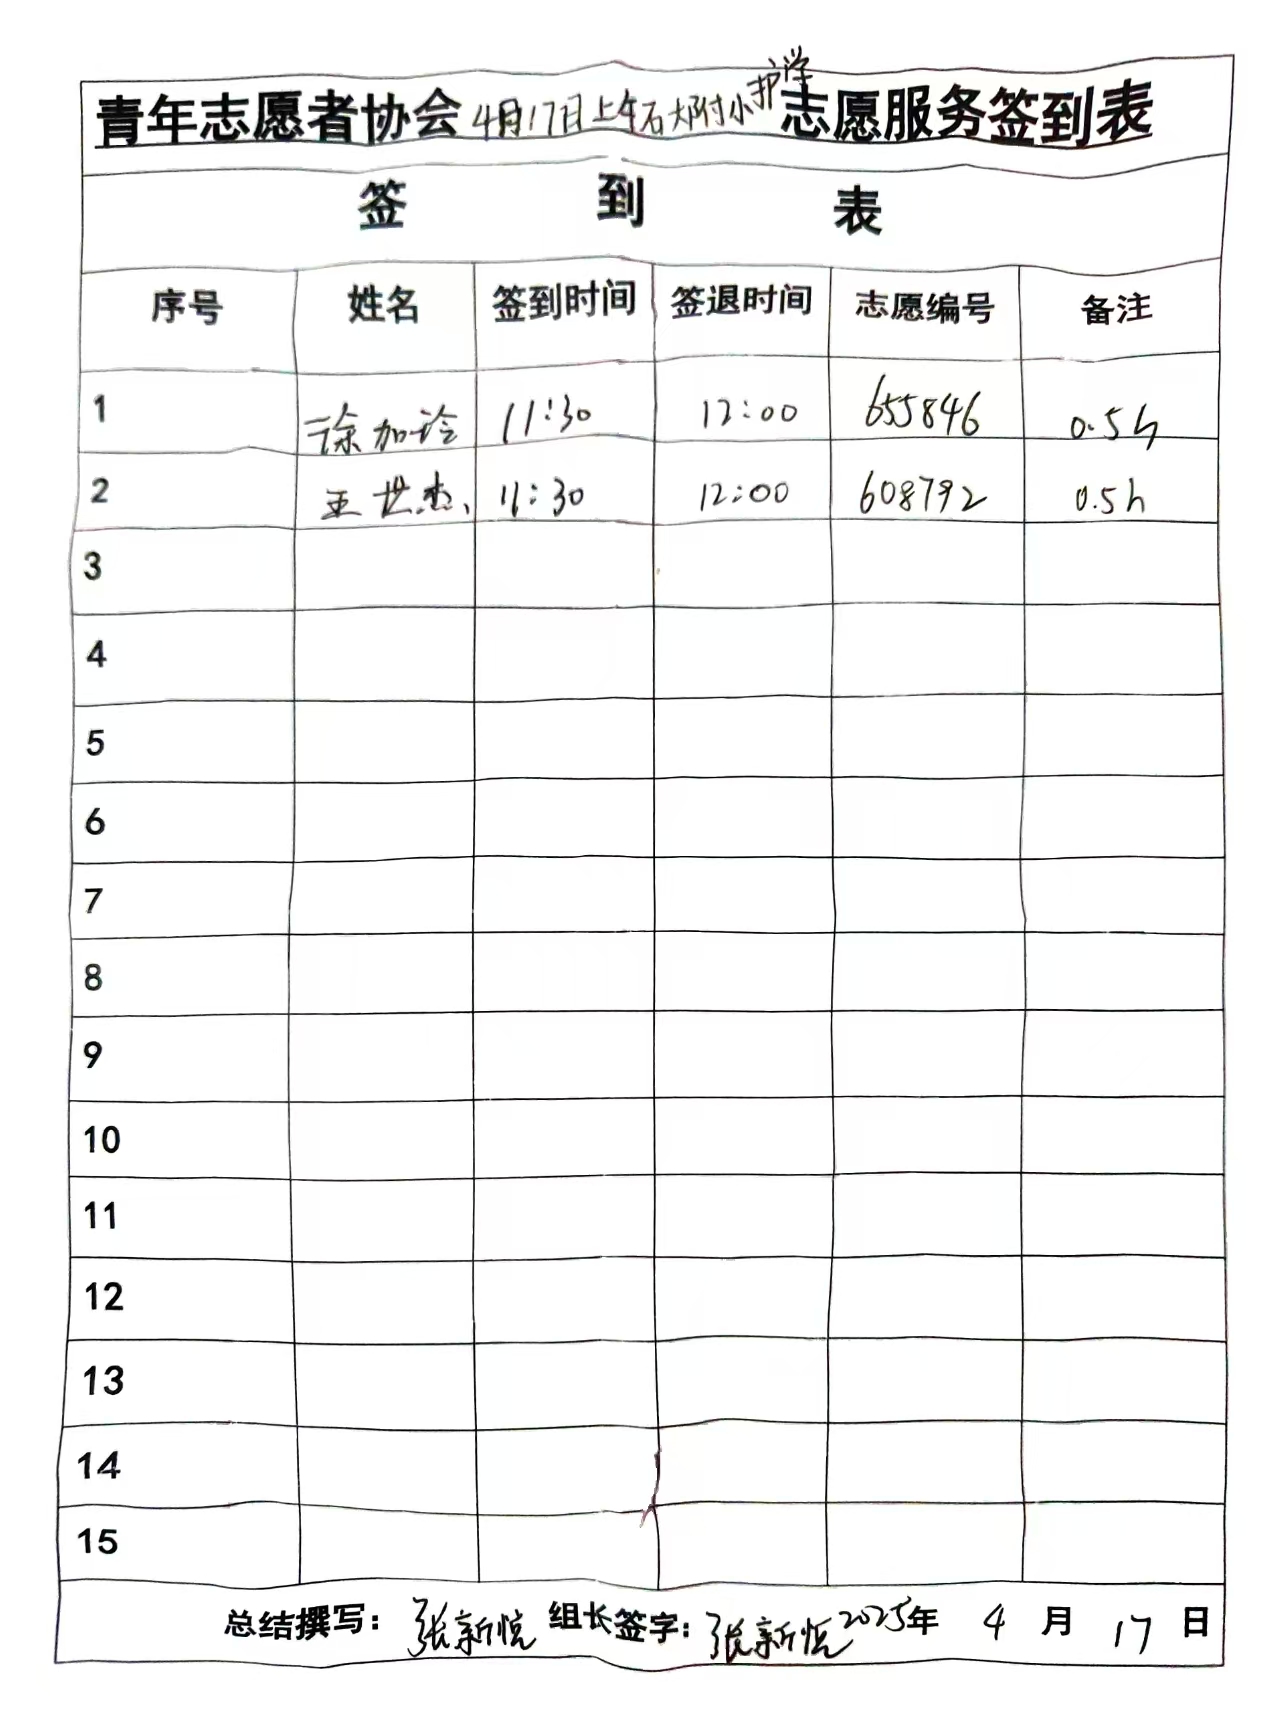 青年志愿者协会4月17日上午石大附小护学志愿服务签到表
签 到 表
序号 姓名 签到时间 签退时间 志愿编号 备注
1 徐加玲 11:30 12:00 655846 0.5h
2 王世杰 11:30 12:00 608792 0.5h
3
4
5
6
7
8
9
10
11
12
13
14
15
总结撰写: 张新悦 组长签字: 张新悦 2025年 4 月 17 日